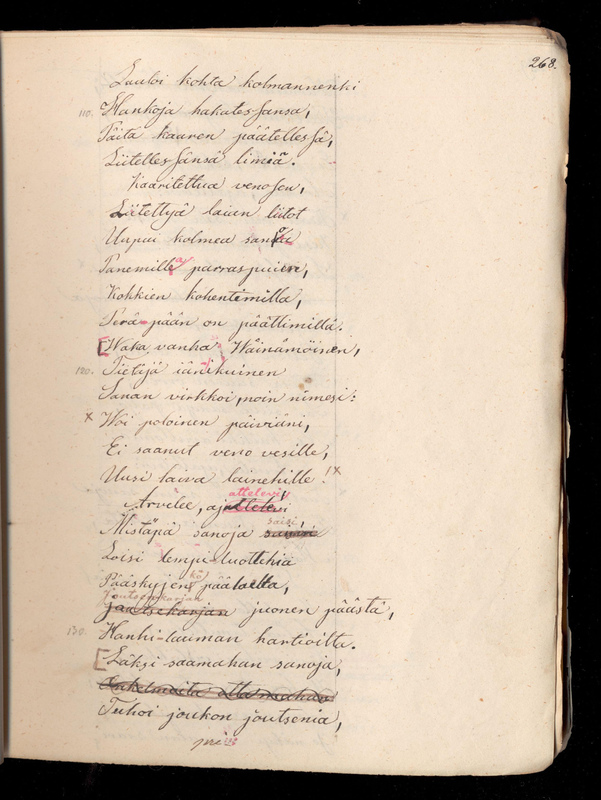 268.
Lauloi kohta kolmannenki
110. Hankoja hakatessansa,
Päitä kaaren päätellessä,
Liitellessänsä limiä.
Kaaritettua venosen,
Liitettyä laian liitot
Uupui kolmea sanoa
Panemilla parraspuien,
Kohkien kohentimilla,
Perä-pään on päättimillä.
[Waka vanha Wäinämöinen,
120. Tietäjä iänikuinen
Sanan virkkoi, noin nimesi:
x Woi poloinen päiviäni,
Ei saanut veno vesille,
Uusi laiva lainehille! x
attelevi,
Arvelee, ajattelevi
saisi,
Mistäpä sanoja
Loisi lempi-luottehia
kö
Pääskyjen päälaelta,
Joutsenkarjan
joutsekarjan juonen päästä,
130. Hanhi-lauman hartioilta.
[Läksi saamahan sanoja,
Tuhoi joukon joutsenia,